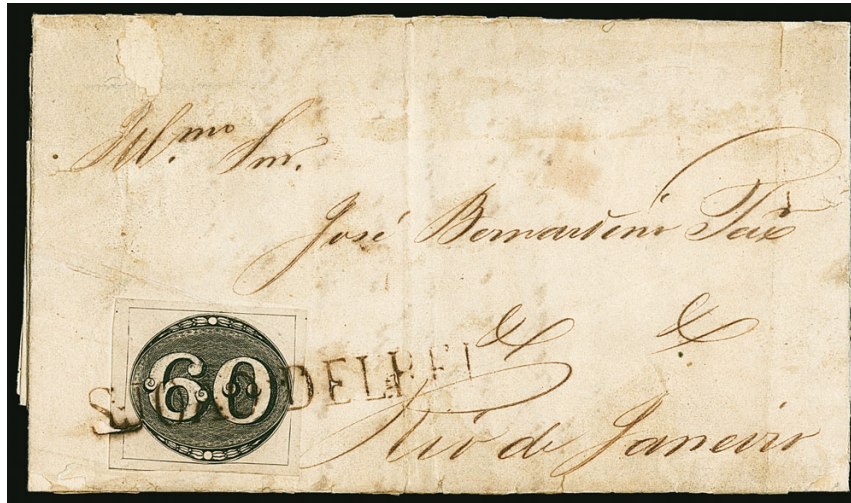 Ill.mo Snr.
José Bernardino
& &
60
DELREI
Rio de Janeiro